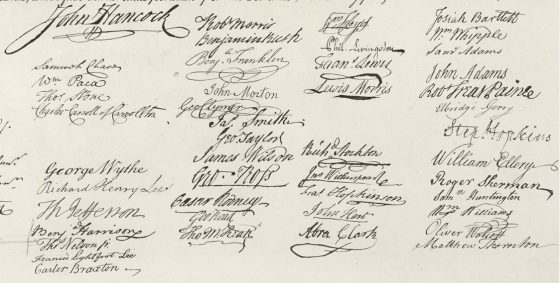 John Hancock
Samuel Chase
Wm Paca
Thos Stone
Charles Carroll of Carrollton
George Wythe
Richard Henry Lee
Th Jefferson
Benj Harrison
Thos Nelson jr.
Francis Lightfoot Lee
Carter Braxton
Robt Morris
Benjamin Rush
Benj. Franklin
John Morton
Geo Clymer
Jas. Smith
Geo. Taylor
James Wilson
Geo. Ross
Caesar Rodney
Geo Read
Tho M:Kean
Wm Floyd
Phil. Livingston
Frans. Lewis
Lewis Morris
Richd. Stockton
Jno Witherspoon
Fras. Hopkinson
John Hart
Abra Clark
Josiah Bartlett
Wm Whipple
Saml Adams
John Adams
Robt Treat Paine
Elbridge Gerry
Step. Hopkins
William Ellery
Roger Sherman
Saml Huntington
Wm Williams
Oliver Wolcott
Matthew Thornton